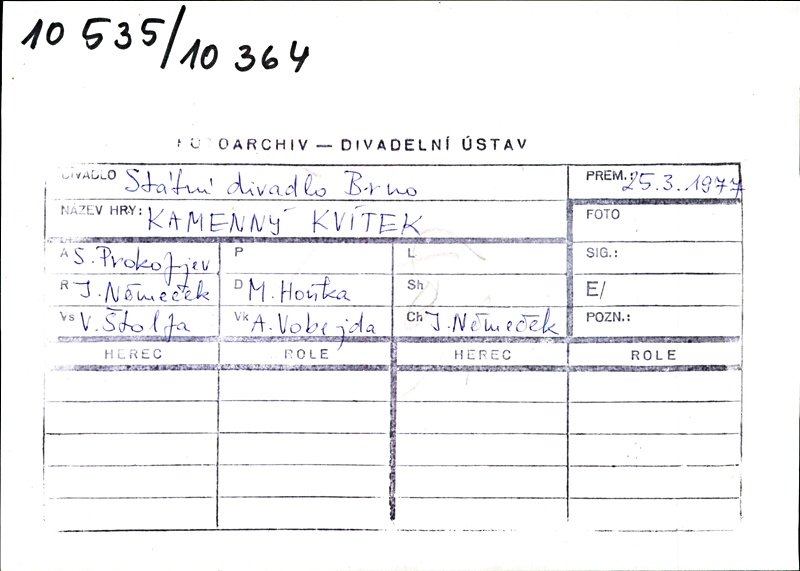 10 535/10 364
FOTOARCHIV — DIVADELNÍ ÚSTAV
DIVADLO Státní divadlo Brno PREM.: 25.3.1977
NÁZEV HRY: KAMENNÝ KVÍTEK FOTO
A S. Prokofjev P L SIG.:
R J. Němeček D M. Hoňka Sh E/
Vs V. Štolfa Vk A. Vobejda Ch J. Němeček POZN.:
HEREC ROLE HEREC ROLE